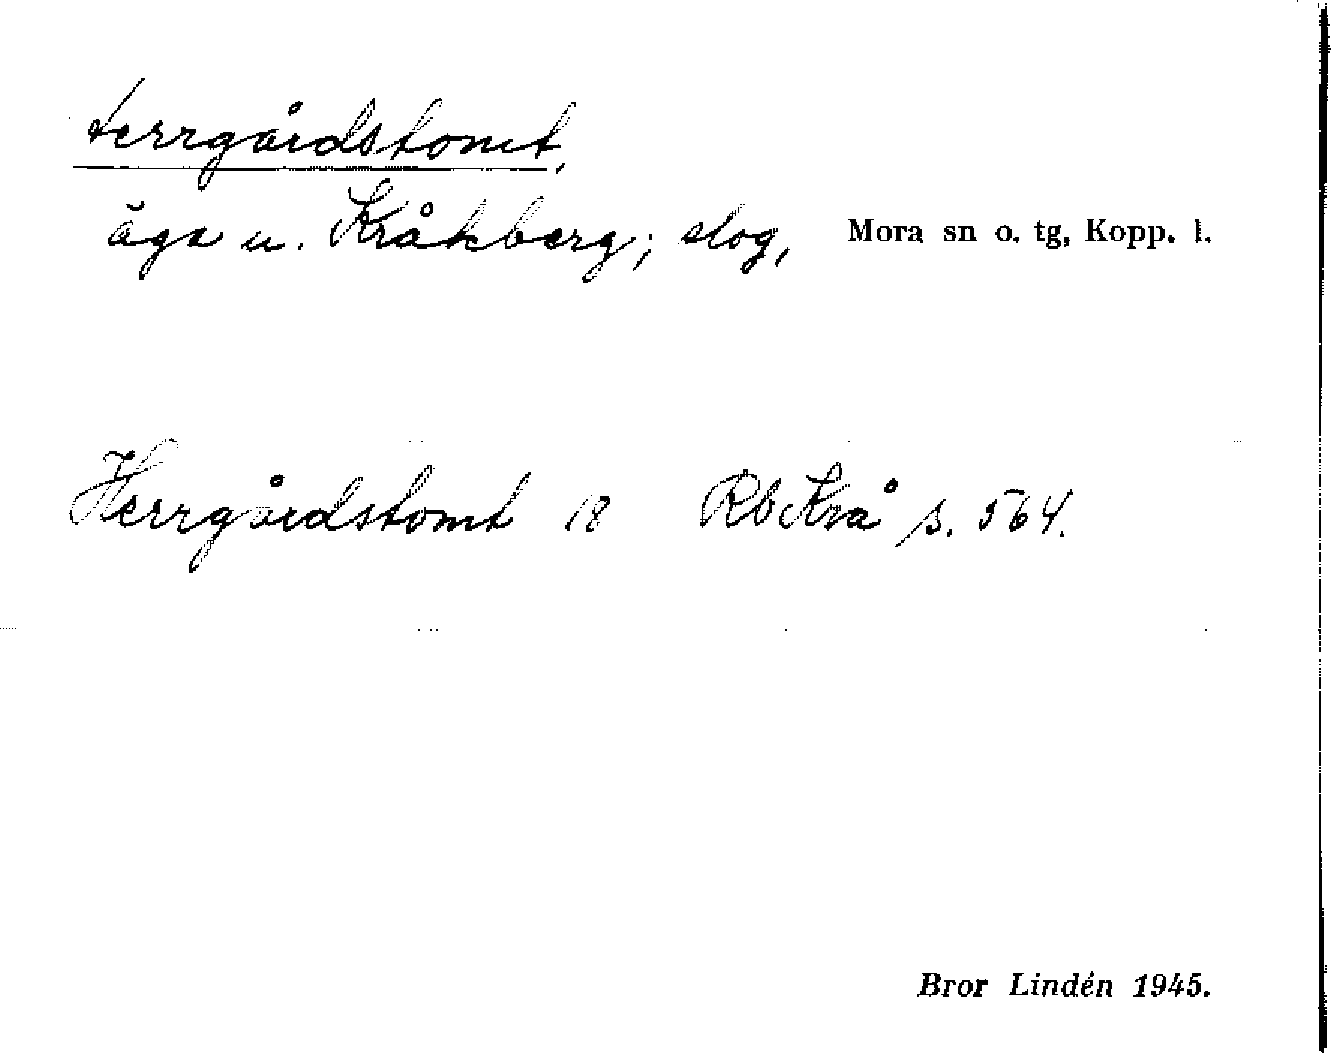 Herrgårdstomt,
äga u. Kråkberg; slog, Mora sn o. tg, Kopp. l.
Herrgårdstomt 18 Rb Krå s. 564.
Bror Lindén 1945.